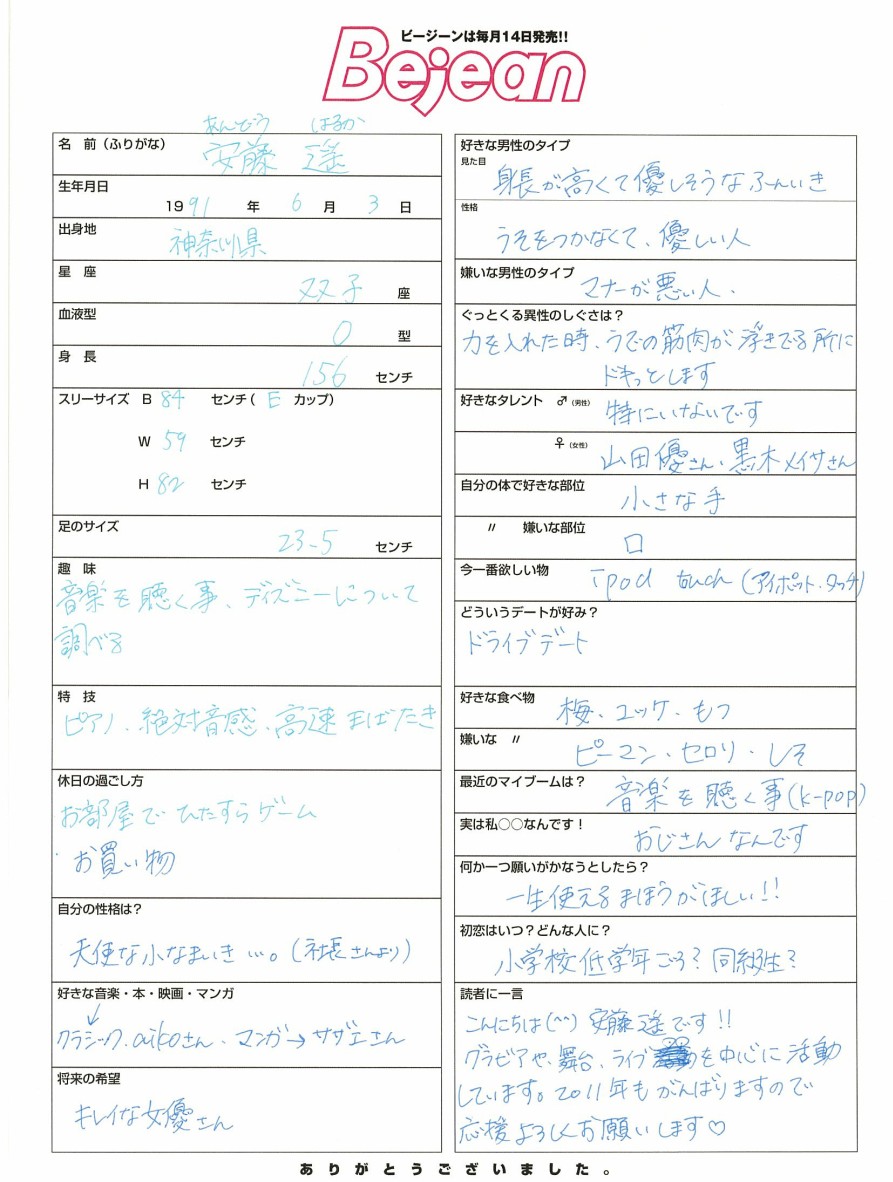 ビージーンは毎月14日発売!!
Bejean
あんどう はるか
名 前(ふりがな) 安藤 遥
生年月日
1991 年 6 月 3 日
出身地
神奈川県
星 座
双子 座
血液型
O 型
身 長
156 センチ
スリーサイズ B 84 センチ( E カップ)
W 59 センチ
H 82 センチ
足のサイズ
23.5 センチ
趣 味
音楽を聴く事、ディズニーについて
調べる
特 技
ピアノ、絶対音感、高速まばたき
休日の過ごし方
お部屋でひたすらゲーム
お買い物
自分の性格は?
天使な小なまいき …。(社長さんより)
好きな音楽・本・映画・マンガ
↓
クラシック、aikoさん、マンガ→サザエさん
将来の希望
キレイな女優さん
好きな男性のタイプ
見た目
身長が高くて優しそうなふんいき
性格
うそをつかなくて、優しい人
嫌いな男性のタイプ
マナーが悪い人、
ぐっとくる異性のしぐさは?
力を入れた時、うでの筋肉が浮きでる所に
ドキっとします
好きなタレント ♂(男性) 特にいないです
♀(女性) 山田優さん、黒木メイサさん
自分の体で好きな部位
小さな手
〃 嫌いな部位
口
今一番欲しい物 ipod touch(アイポット・タッチ)
どういうデートが好み?
ドライブデート
好きな食べ物 梅、ユッケ、もつ
嫌いな 〃 ピーマン、セロリ・しそ
最近のマイブームは? 音楽を聴く事(K-pop)
実は私○○なんです!
おじさんなんです
何か一つ願いがかなうとしたら?
一生使えるまほうがほしい!!
初恋はいつ?どんな人に?
小学校低学年ごろ?同級生?
読者に一言
こんにちは(^^) 安藤遥です!!
グラビアや、舞台、ライブを中心に活動
しています。2011年もがんばりますので
応援よろしくお願いします♡
ありがとうございました。